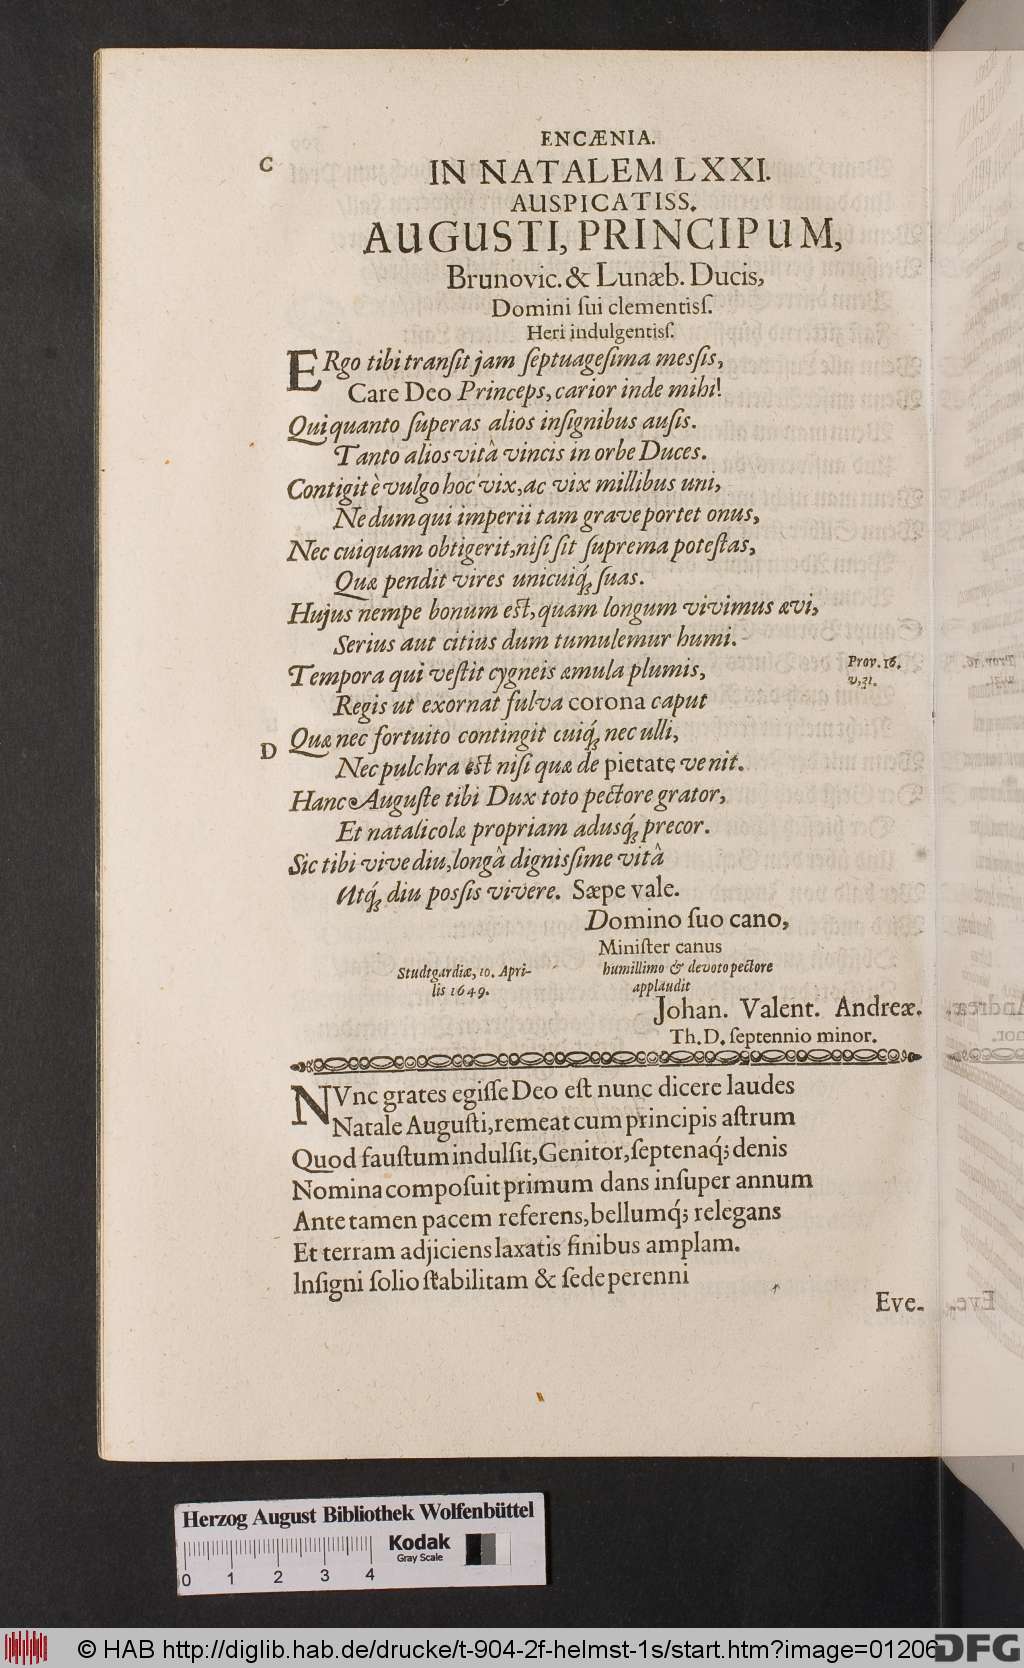 ENCÆNIA.
C
IN NATALEM LXXI.
AUSPICATISS.
AUGUSTI, PRINCIPUM,
Brunovic. & Lunæb. Ducis,
Domini ſui clementiſſ.
Heri indulgentiſſ.
ERgo tibi tranſit jam ſeptuageſima meſsis,
Care Deo Princeps, carior inde mihi!
Qui quanto ſuperas alios inſignibus auſis.
Tanto alios vitâ vincis in orbe Duces.
Contigit è vulgo hoc vix, ac vix millibus uni,
Nedum qui imperii tam grave portet onus,
Nec cuiquam obtigerit, niſi ſit ſuprema poteſtas,
Quæ pendit vires unicuiq́; ſuas.
Hujus nempe bonum eſt, quam longum vivimus ævi,
Serius aut citius dum tumulemur humi.
Tempora qui veſtit cygneis æmula plumis,
Prov. 16.
v, 31.
Regis ut exornat fulva corona caput
D
Quæ nec fortuito contingit cuiq́; nec ulli,
Nec pulchra eſt niſi quæ de pietate venit.
Hanc Auguſte tibi Dux toto pectore grator,
Et natalicolæ propriam adusq́; precor.
Sic tibi vive diu, longâ digniſsime vitâ
Utq́; diu poſsis vivere. Sæpe vale.
Domino ſuo cano,
Miniſter canus
Studtgardiæ, 10. Apri-
lis 1649.
humillimo & devoto pectore
applaudit
Johan. Valent. Andreæ.
Th. D. ſeptennio minor.
NVnc grates egiſſe Deo eſt nunc dicere laudes
Natale Auguſti, remeat cum principis aſtrum
Quod fauſtum indulſit, Genitor, ſeptenaq́; denis
Nomina compoſuit primum dans inſuper annum
Ante tamen pacem referens, bellumq́; relegans
Et terram adjiciens laxatis finibus amplam.
Inſigni ſolio ſtabilitam & ſede perenni
Eve-
Herzog August Bibliothek Wolfenbüttel
Kodak
Gray Scale
0 1 2 3 4
© HAB http://diglib.hab.de/drucke/t-904-2f-helmst-1s/start.htm?image=01206
DFG